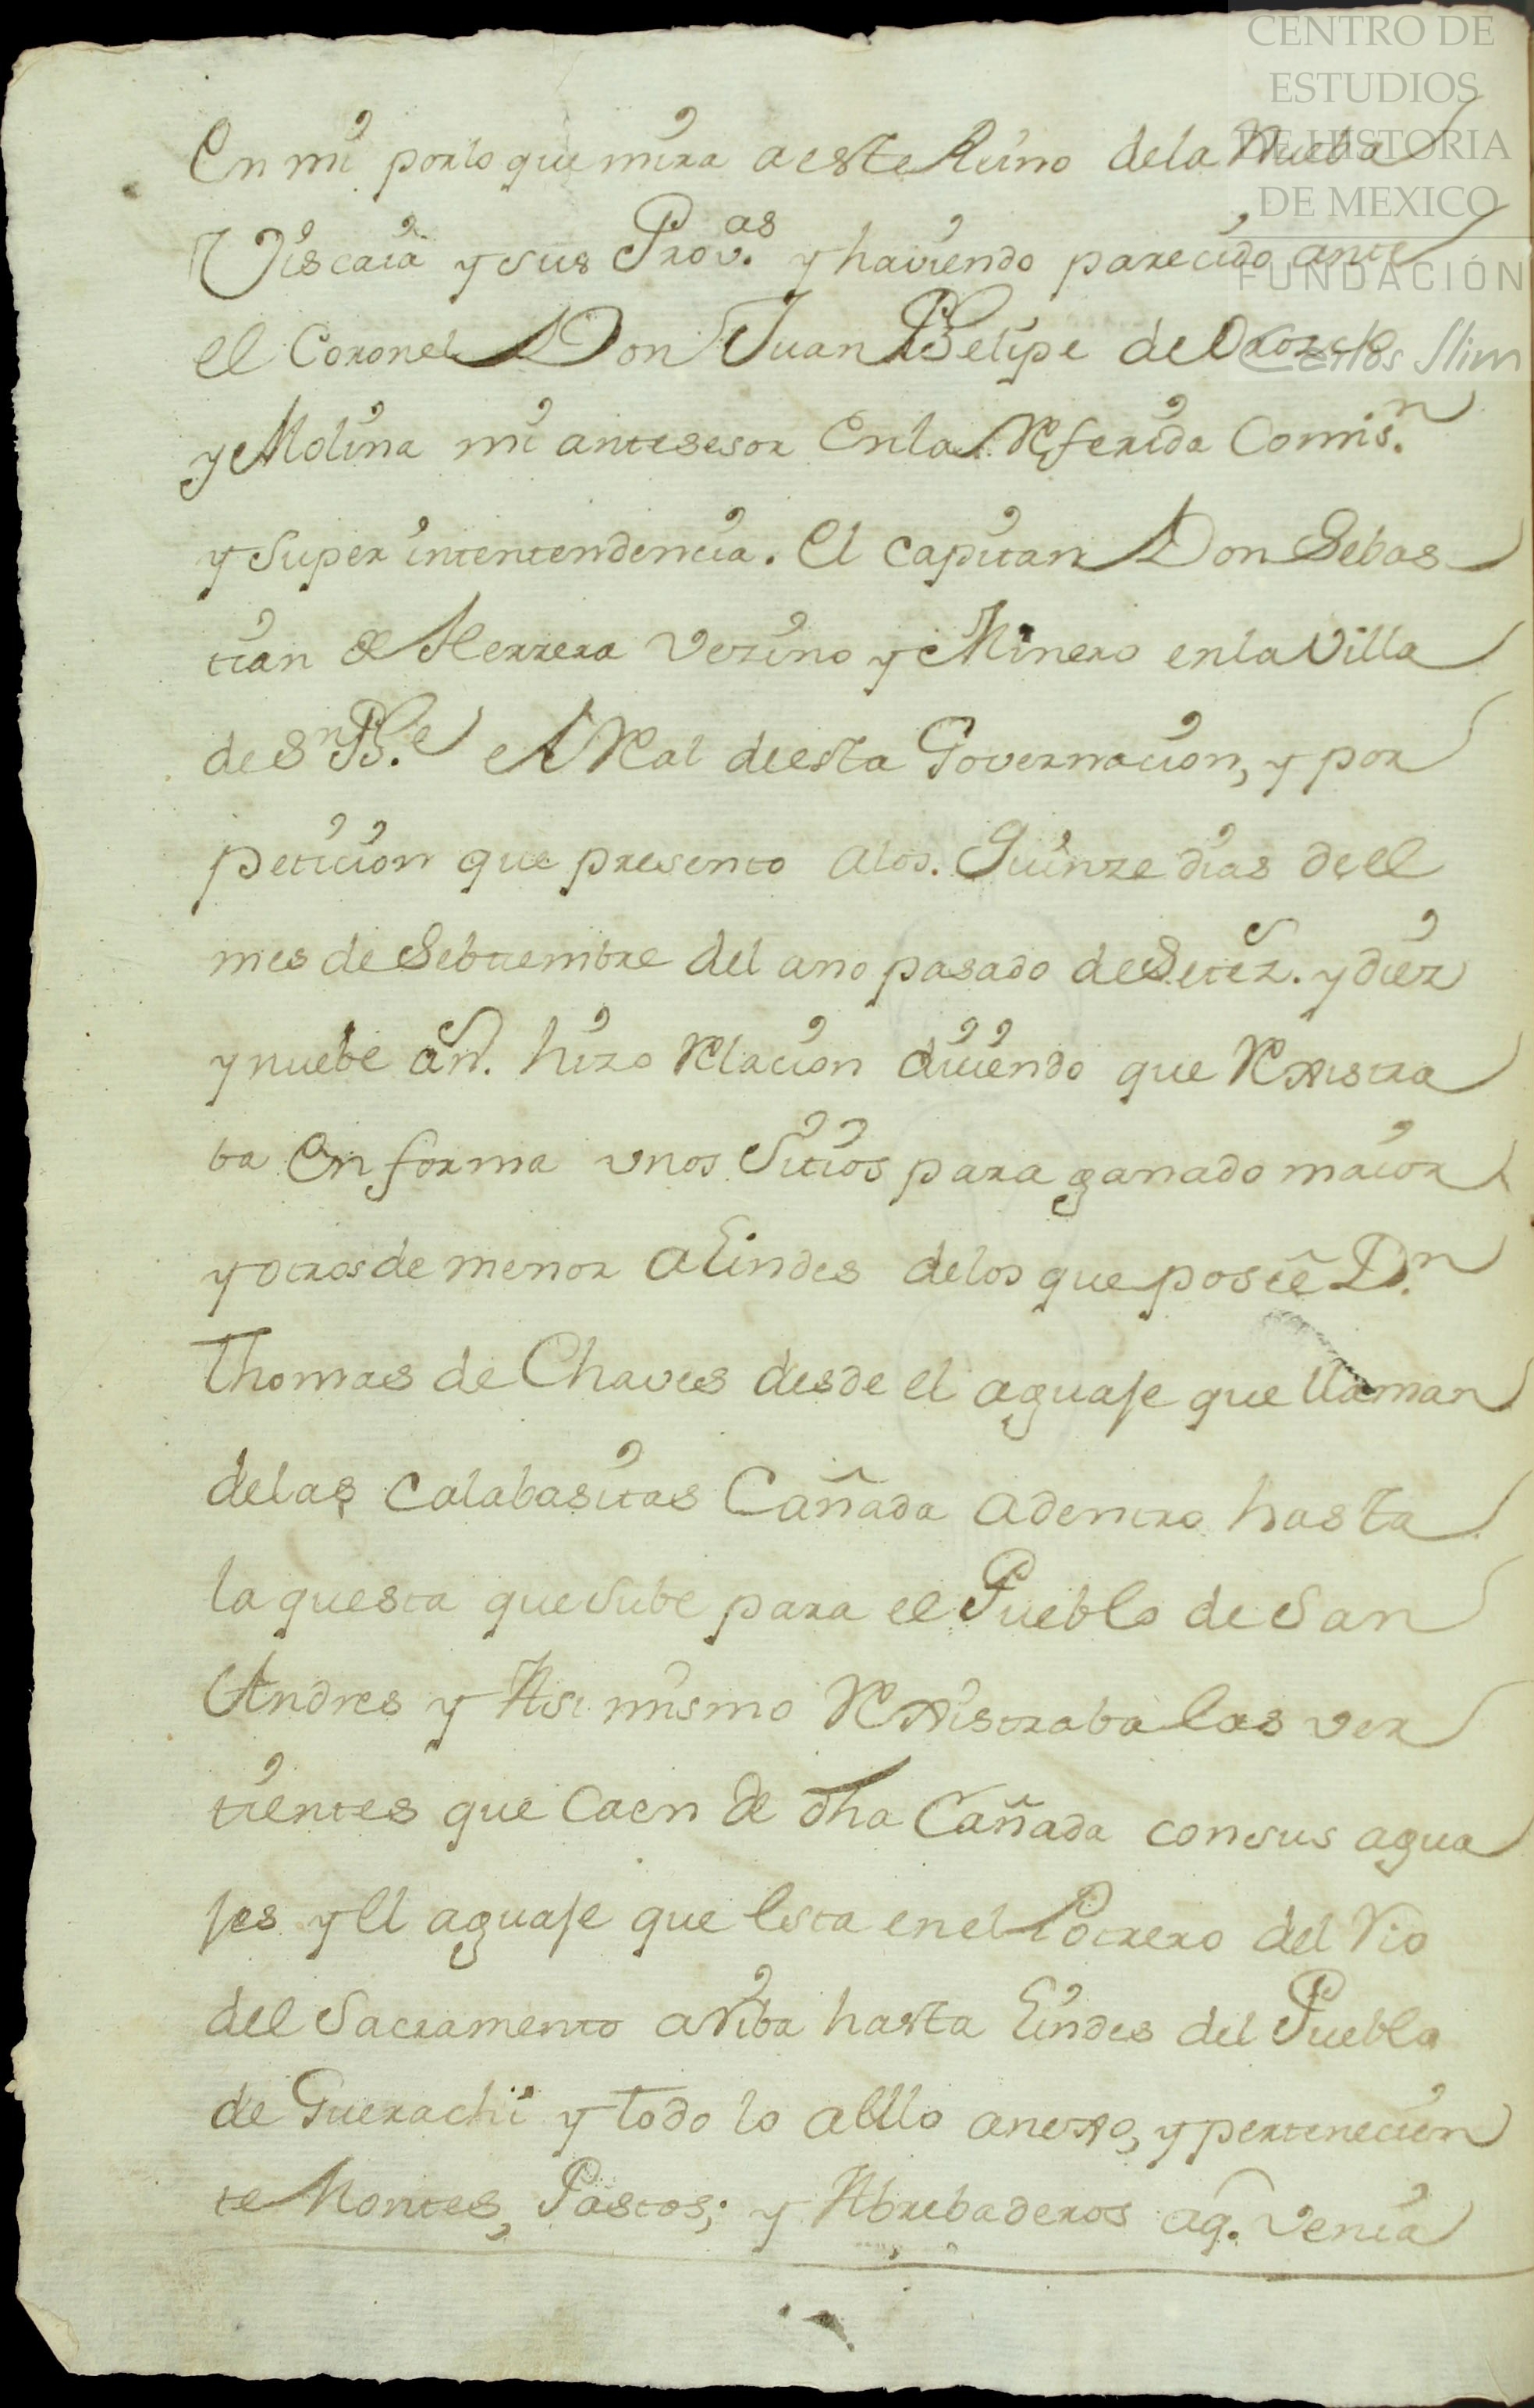 CENTRO DE
ESTUDIOS
DE HISTORIA
DE MEXICO
FUNDACIÓN
Carlos Slim
En mi por lo que mira a este Reino de la Nueba
Viscaia y sus Prov.as y haviendo parecido ante
el Coronel Don Juan Phelipe de Orozco
y Molina mi antesesor En la Referida Comis.n
y super intentendencia. El capitan Don Sebas
tian de Herrera vezino y Minero en la Villa
de Sn Phe. el Real de esta Governacion, y por
peticion que presento a los. Quinze dias de el
mes de Sebtiembre del ano pasado de Setez. y diez
y nuebe an. hizo Relacion diciendo que Rexistra
ba En forma unos Sitios para ganado maior
y otros de menor a Lindes de los que posee D.n
Thomas de Chaves desde el aguaje que llaman
de las Calabasitas Cañada adentro hasta
la questa que sube para el Pueblo de San
Andres y Asi mismo Rexistraba las ver
tientes que Caen de dha Cañada con sus agua
jes y El aguaje que Esta en el Potrero del Rio
del Sacramento arriba hasta Lindes del Pueblo
de Guerachi y todo lo a Ello anexo, y pertenecien
te Montes, Pastos; y Abrebaderos aq. Venia